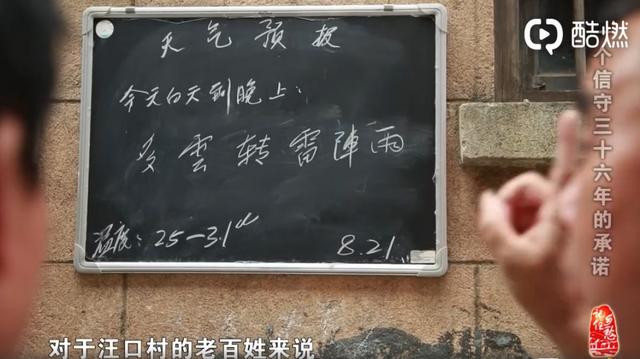 酷燃
天气预报
今天白天到晚上:
多雲转雷陣雨
温度: 25-31℃
8.21
个信守三十六年的承诺
对于汪口村的老百姓来说